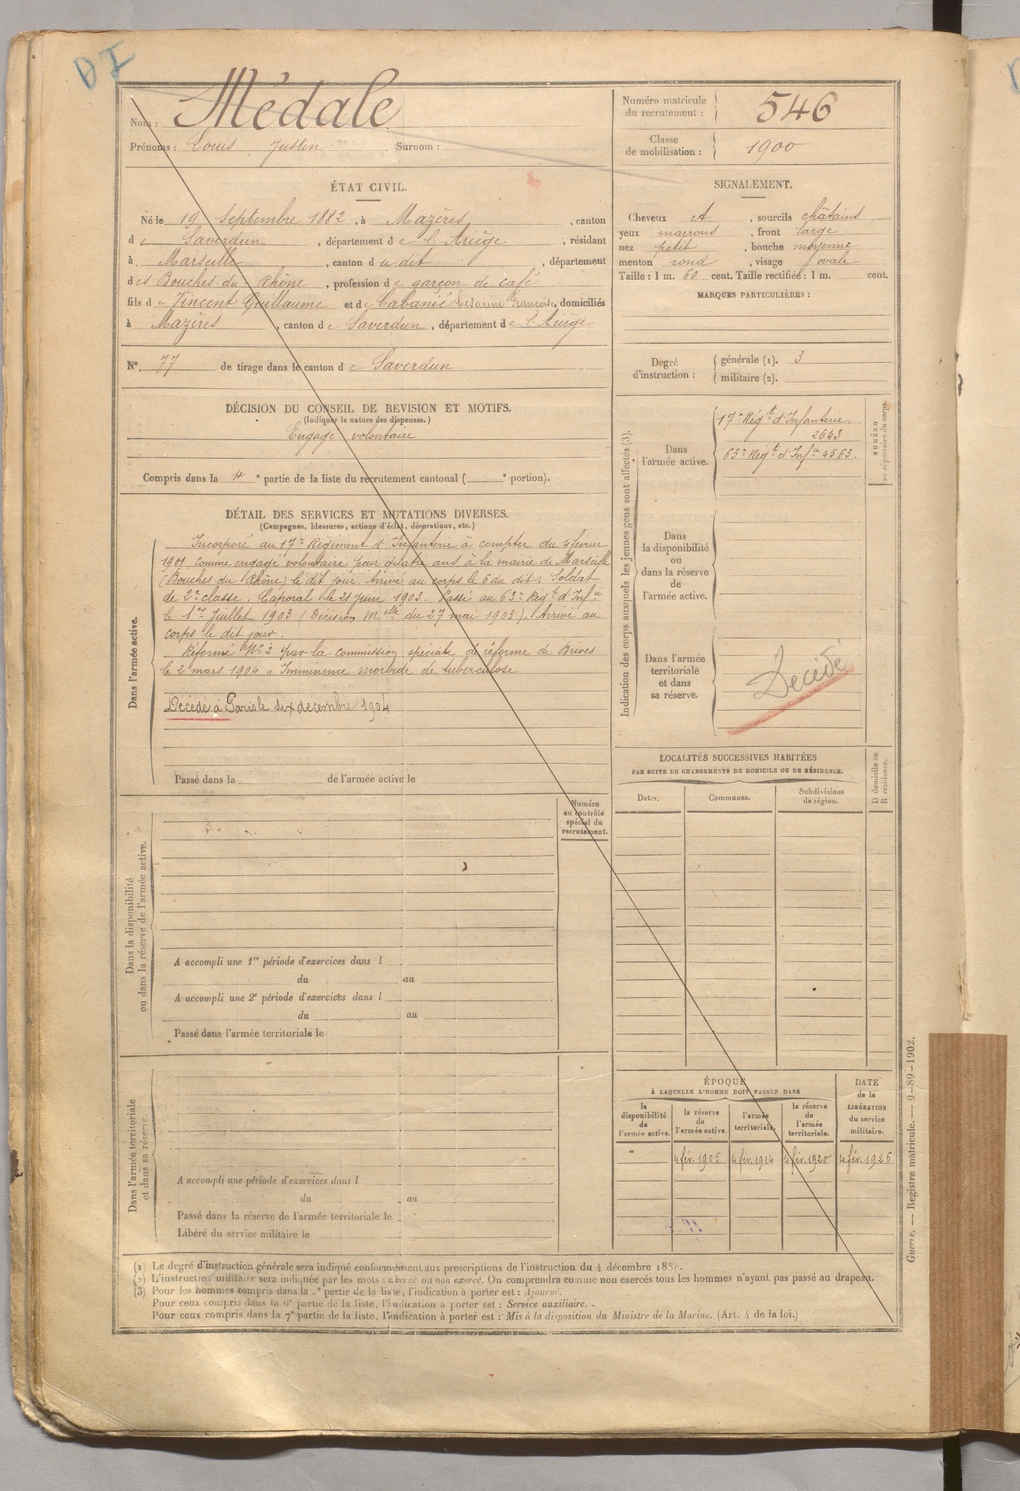 DI
Nom : Médale
Prénoms : Louis Justin Surnom :
Numéro matricule du recrutement : 546
Classe de mobilisation : 1900
ÉTAT CIVIL.
Né le 19 Septembre 1882, à Mazères, canton
de Saverdun, département de l'Ariège, résidant
à Marseille, canton du dit, département
des Bouches du Rhône, profession de garçon de café
fils de Vincent Guillaume et de Cabanié Françoise, domiciliés
à Mazères, canton de Saverdun, département de l'Ariège
N° 77 de tirage dans le canton de Saverdun
DÉCISION DU CONSEIL DE REVISION ET MOTIFS.
(Indiquer la nature des dispenses.)
Engagé volontaire
Compris dans la 4e partie de la liste du recrutement cantonal ( e portion).
SIGNALEMENT.
Cheveux et, sourcils châtains
yeux marrons, front large
nez petit, bouche moyenne
menton rond, visage ovale
Taille : 1 m. 60 cent. Taille rectifiée : 1 m. cent.
MARQUES PARTICULIÈRES :
Degré d'instruction : générale (1). 3
militaire (2).
Indication des corps auxquels les jeunes gens sont affectés (3).
NUMÉRO au répertoire du corps.
Dans l'armée active.
17e Régt d'Infanterie
2643
63e Régt d'Infie 4563.
Dans la disponibilité ou dans la réserve de l'armée active.
Dans l'armée territoriale et dans sa réserve.
Décédé
DÉTAIL DES SERVICES ET MUTATIONS DIVERSES.
(Campagnes, blessures, actions d'éclat, décorations, etc.)
Dans l'armée active.
Incorporé au 17e Régiment d'Infanterie à compter du 4 février
1901 comme engagé volontaire pour quatre ans à la mairie de Marseille
(Bouches du Rhône) le dit jour. Arrivé au corps le 6 du dit. Soldat
de 2e classe. Caporal le 21 juin 1903. Passé au 63e Régt d'Infie
le 1er Juillet 1903 (Décision Melle du 27 mai 1903). Arrivé au
corps le dit jour.
Réformé No 2 par la commission spéciale de réforme de Brives
le 2 mars 1904 „ Imminence morbide de tuberculose
Décédé à Paris le six décembre 1904
Passé dans la de l'armée active le
Dans la disponibilité ou dans la réserve de l'armée active.
Numéro au contrôle spécial du recrutement.
A accompli une 1re période d'exercices dans l
du au
A accompli une 2e période d'exercices dans l
du au
Passé dans l'armée territoriale le
Dans l'armée territoriale et dans sa réserve.
A accompli une période d'exercices dans l
du au
Passé dans la réserve de l'armée territoriale le
Libéré du service militaire le
LOCALITÉS SUCCESSIVES HABITÉES
PAR SUITE DE CHANGEMENTS DE DOMICILE OU DE RÉSIDENCE.
D domicile ou R résidence.
Dates. Communes. Subdivisions de région.
ÉPOQUE
À LAQUELLE L'HOMME DOIT PASSER DANS
DATE de la LIBÉRATION du service militaire.
la disponibilité de l'armée active. la réserve de l'armée active. l'armée territoriale. la réserve de l'armée territoriale.
4 fév. 1905 4 fév. 1914 4 fév. 1920 4 fév. 1926
(1) Le degré d'instruction générale sera indiqué conformément aux prescriptions de l'instruction du 4 décembre 1889.
(2) L'instruction militaire sera indiquée par les mots : exercé ou non exercé. On comprendra comme non exercés tous les hommes n'ayant pas passé au drapeau.
(3) Pour les hommes compris dans la partie de la liste, l'indication à porter est : Ajourné.
Pour ceux compris dans la 6e partie de la liste, l'indication à porter est : Service auxiliaire.
Pour ceux compris dans la 7e partie de la liste, l'indication à porter est : Mis à la disposition du Ministre de la Marine. (Art. 4 de la loi.)
Guerre. — Registre matricule. — 9-89-1902.